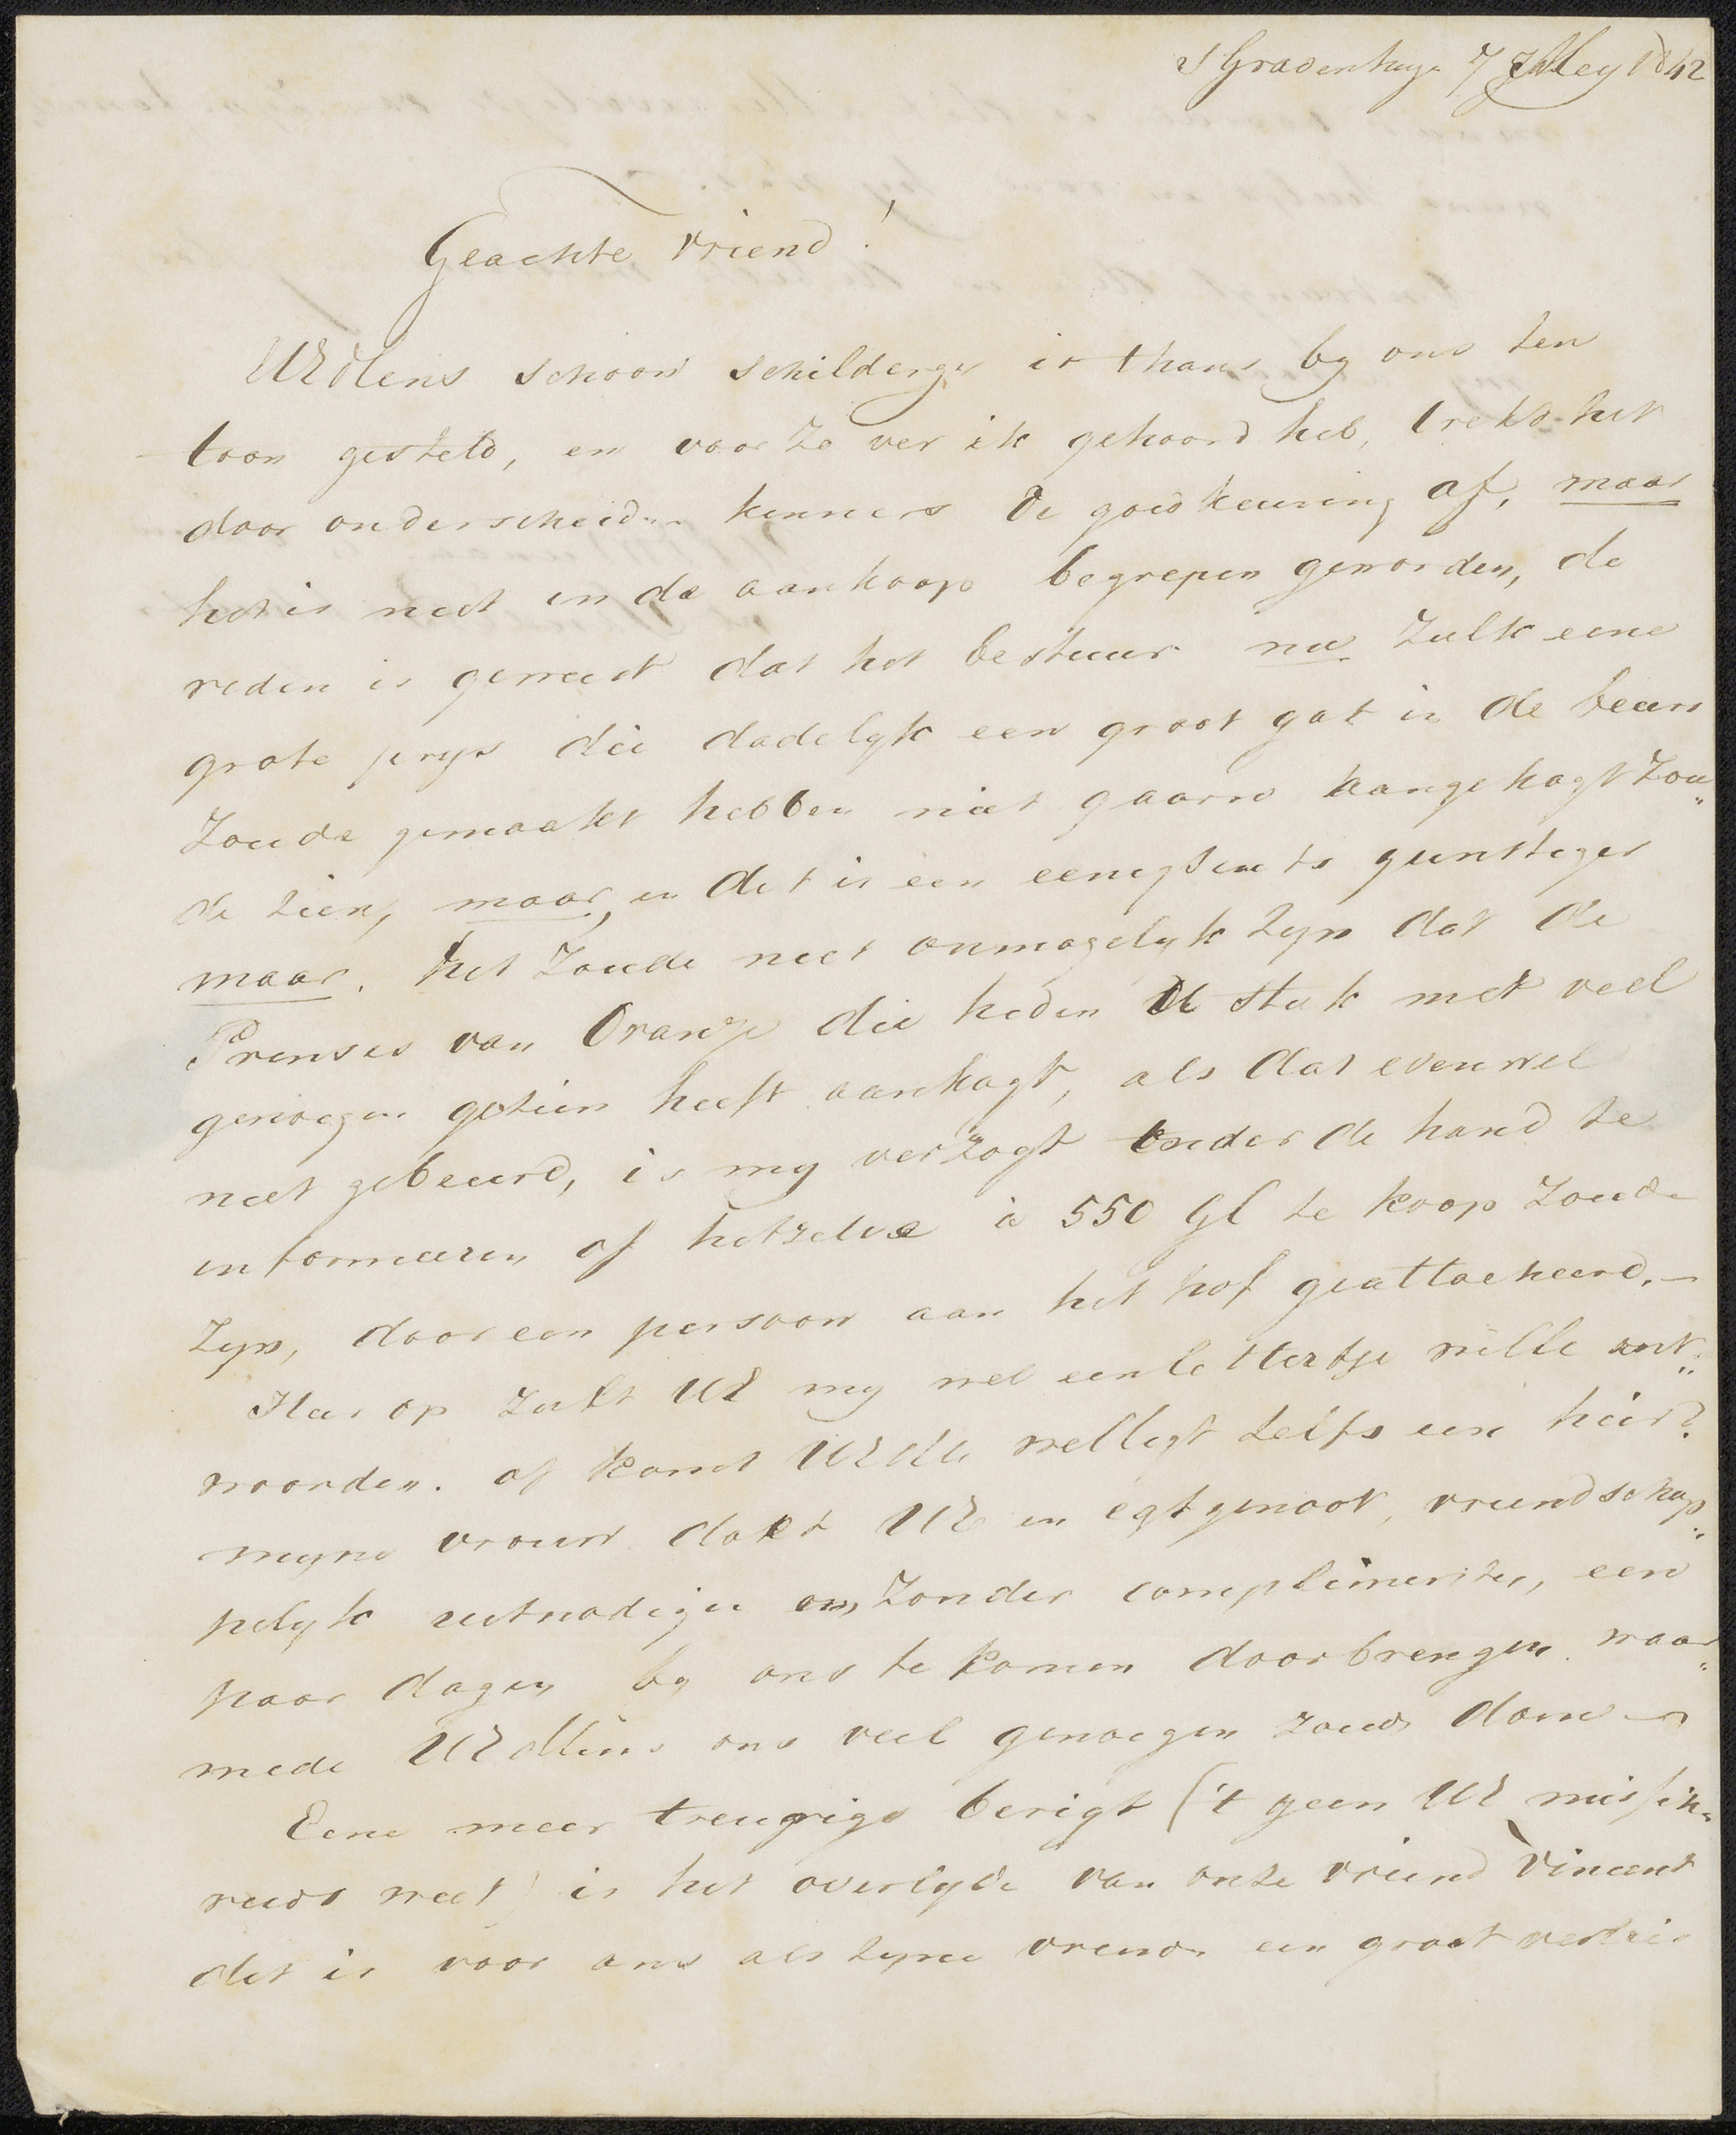 s Gravenhage 7 Mey 1842
Geachte vriend!
UEdlens schoon schilderye is thans by ons ten
toon gesteld, en voor zo ver ik gehoord heb, trekt het
door onderscheiden kenners de goedkeuring af, maar
het is niet in de aankoop begrepen geworden, de
reden is geweest dat het bestuur nu zulk eene
grote prys die dadelyk een groot gat in de beurs
zoude gemaakt hebben niet gaarne aangekogt zou„
de zien, maar, en dit is een eenigsints gunstiger
maar. het zoude niet onmogelyk zyn dat de
Prinses van Oranje die heden U stuk met veel
genoegen gezien heeft aankogt, als dat evenwel
niet gebeurd, is my verzogt onder de hand te
informeeren of hetzelve à 550 Gl te koop zoude
zyn, door een persoon aan het hof geattacheerd. –
Hier op zult UE my wel een lettertje wille ant„
woorden. of komt UEdle wellegt zelfs eens hier?
myne vrouw doet UE en egtgenoot, vriendschap„
pelyk uitnodige om zonder complimenten, een
paar dagen by ons te komen doorbrengen. waar„
mede UEdlens ons veel genoegen zoude doen –
Eene meer treurige berigt ('t geen UE missch„
reeds weet) is het overlyde van onze vriend Vincent
dit is voor ons als zyne vriende een groot verlies